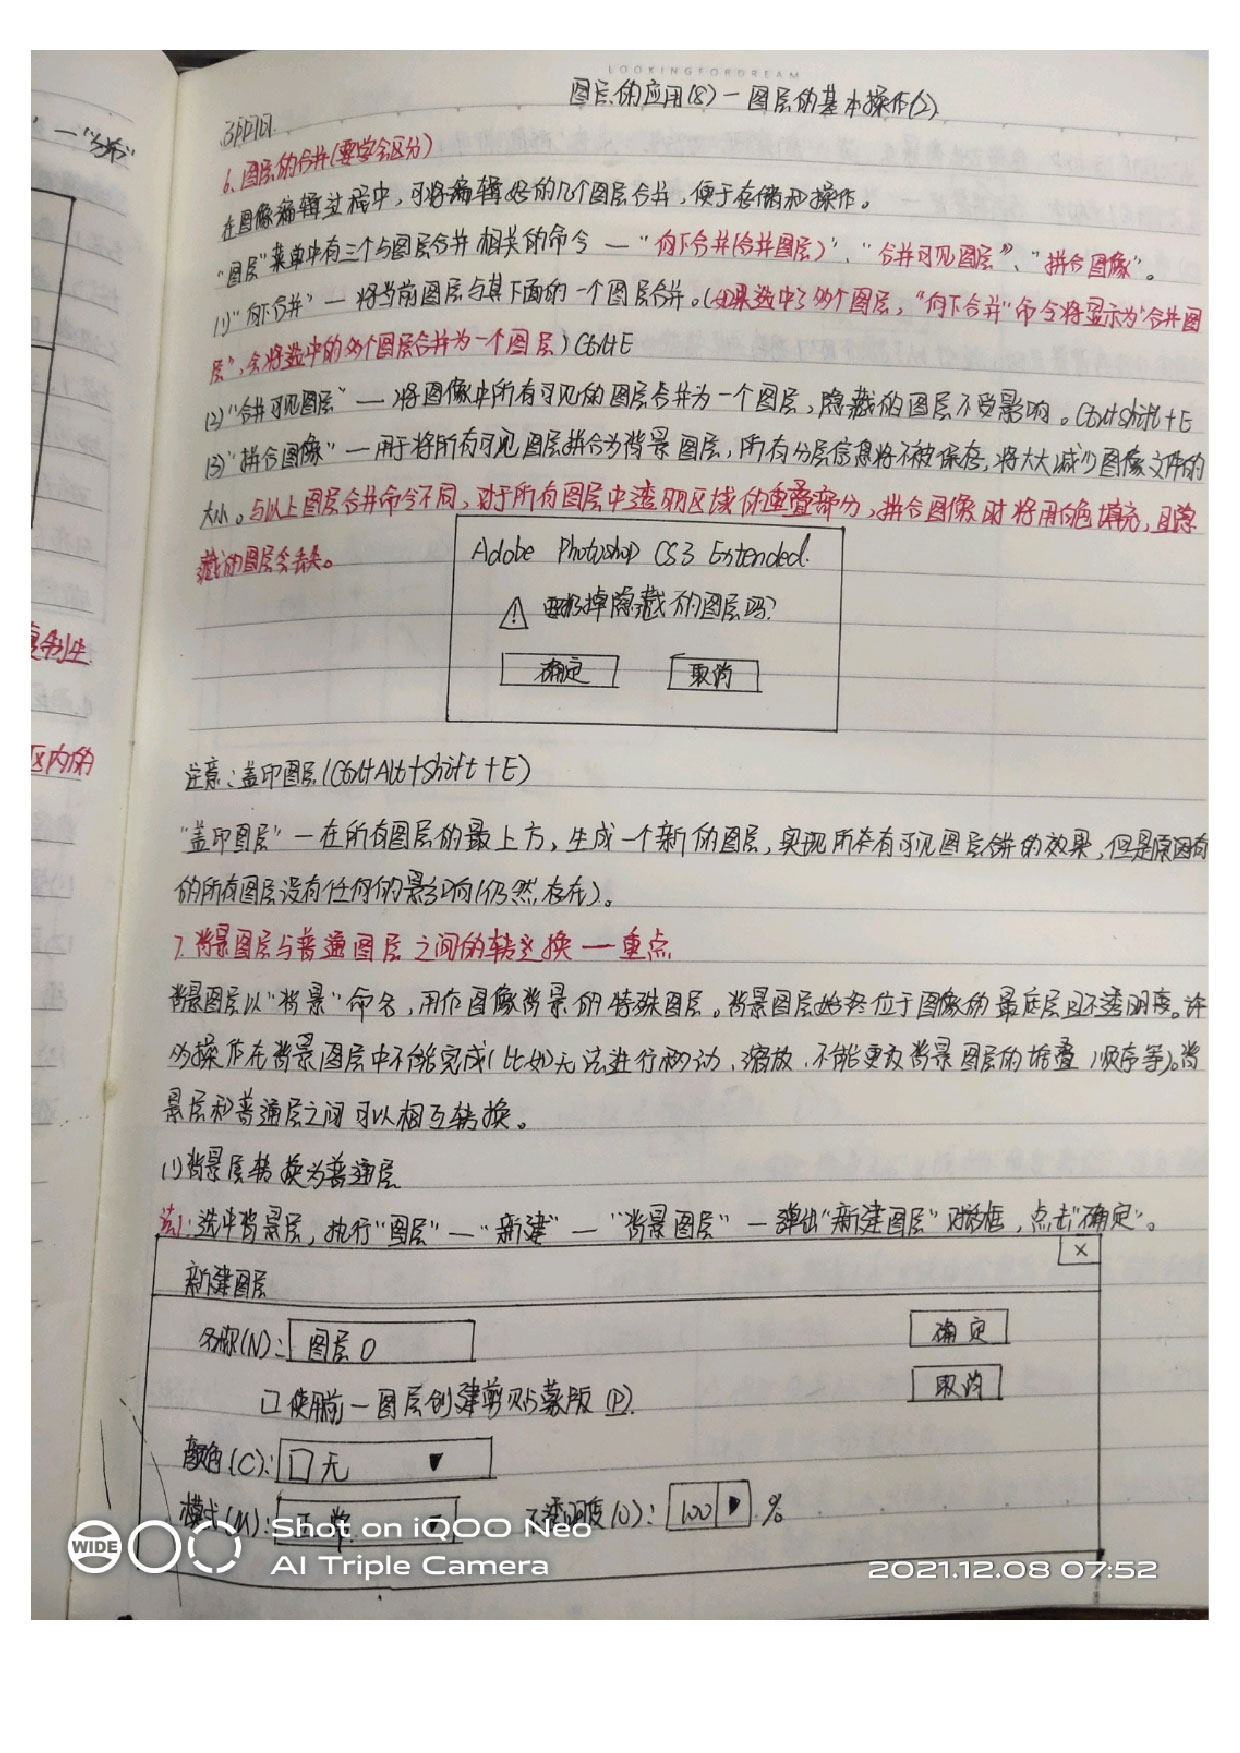 LOOKINGFORDREAM
图层的应用(8)—图层的基本操作(2)
6、图层的合并(要学会区分)
在图像编辑过程中，可将编辑好的几个图层合并，便于存储和操作。
"图层"菜单中有三个与图层合并相关的命令—"向下合并(合并图层)"、"合并可见图层"、"拼合图像"。
(1)"向下合并"—将当前图层与其下面的一个图层合并。(如果选中了多个图层，"向下合并"命令将显示为"合并图
层"，会将选中的多个图层合并为一个图层)Ctrl+E
(2)"合并可见图层"—将图像中所有可见的图层合并为一个图层，隐藏的图层不受影响。Ctrl+Shift+E
(3)"拼合图像"—用于将所有可见图层拼合为背景图层，所有分层信息将不被保存，将大大减少图像文件的
大小。与以上图层合并命令不同，对于所有图层中透明区域的重叠部分，拼合图像时将用白色填充，且隐
藏的图层会丢失。
Adobe Photoshop CS3 Extended.
要扔掉隐藏的图层吗?
确定 取消
复制生
区内的
注意：盖印图层(Ctrl+Alt+Shift+E)
"盖印图层"—在所有图层的最上方，生成一个新的图层，实现所有可见图层合并的效果，但是原图有
的所有图层没有任何的影响(仍然存在)。
7.背景图层与普通图层之间的转换—重点
背景图层以"背景"命名，用作图像背景的特殊图层。背景图层始终位于图像的最底层且不透明度。许
多操作在背景图层中不能完成(比如无法进行移动、缩放、不能更改背景图层的堆叠顺序等)。背
景层和普通层之间可以相互转换。
(1)背景层转换为普通层
法1:选中背景层，执行"图层"—"新建"—"背景图层"—弹出"新建图层"对话框，点击"确定"。
新建图层 X
名称(N): 图层0 确定
使用前一图层创建剪贴蒙版(P). 取消
颜色(C): 无
模式(M): 正常 不透明度(O): 100 %
WIDE
Shot on iQOO Neo
AI Triple Camera
2021.12.08 07:52